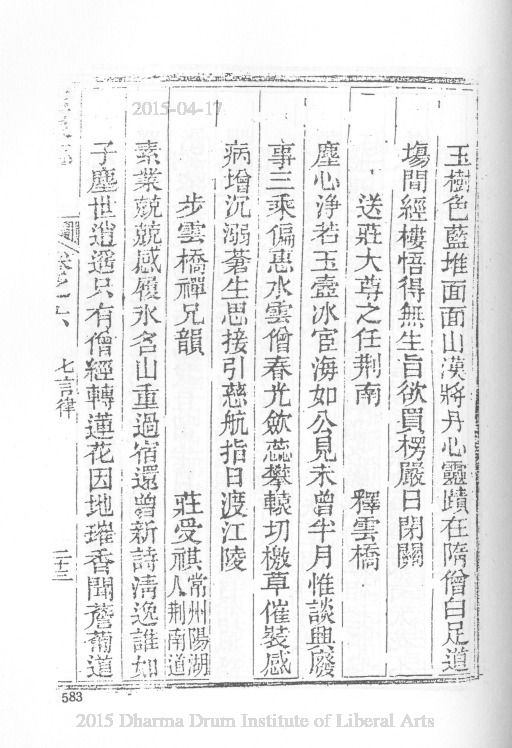 2015-04-17
玉樹色藍堆面面山漠將丹心靈蹟在隋僧白足道
場間經樓悟得無生旨欲買楞嚴日閉關
送莊大尊之任荆南　釋雲橋
塵心浄若玉壺冰宦海如公見未曾半月惟談興廢
事三乘偏惠水雲僧春光斂蕊攀轅切檄草催裝感
病增沉溺蒼生思接引慈航指日渡江陵
步雲橋禪兄韻　莊受祺常州陽湖人荆南道
素業兢兢感履氷名山重過宿還曾新詩清逸誰如
子塵世逍遥只有僧經轉蓮花因地璀香聞薝蔔道
卷之六　七言律　二十三
583
2015 Dharma Drum Institute of Liberal Arts